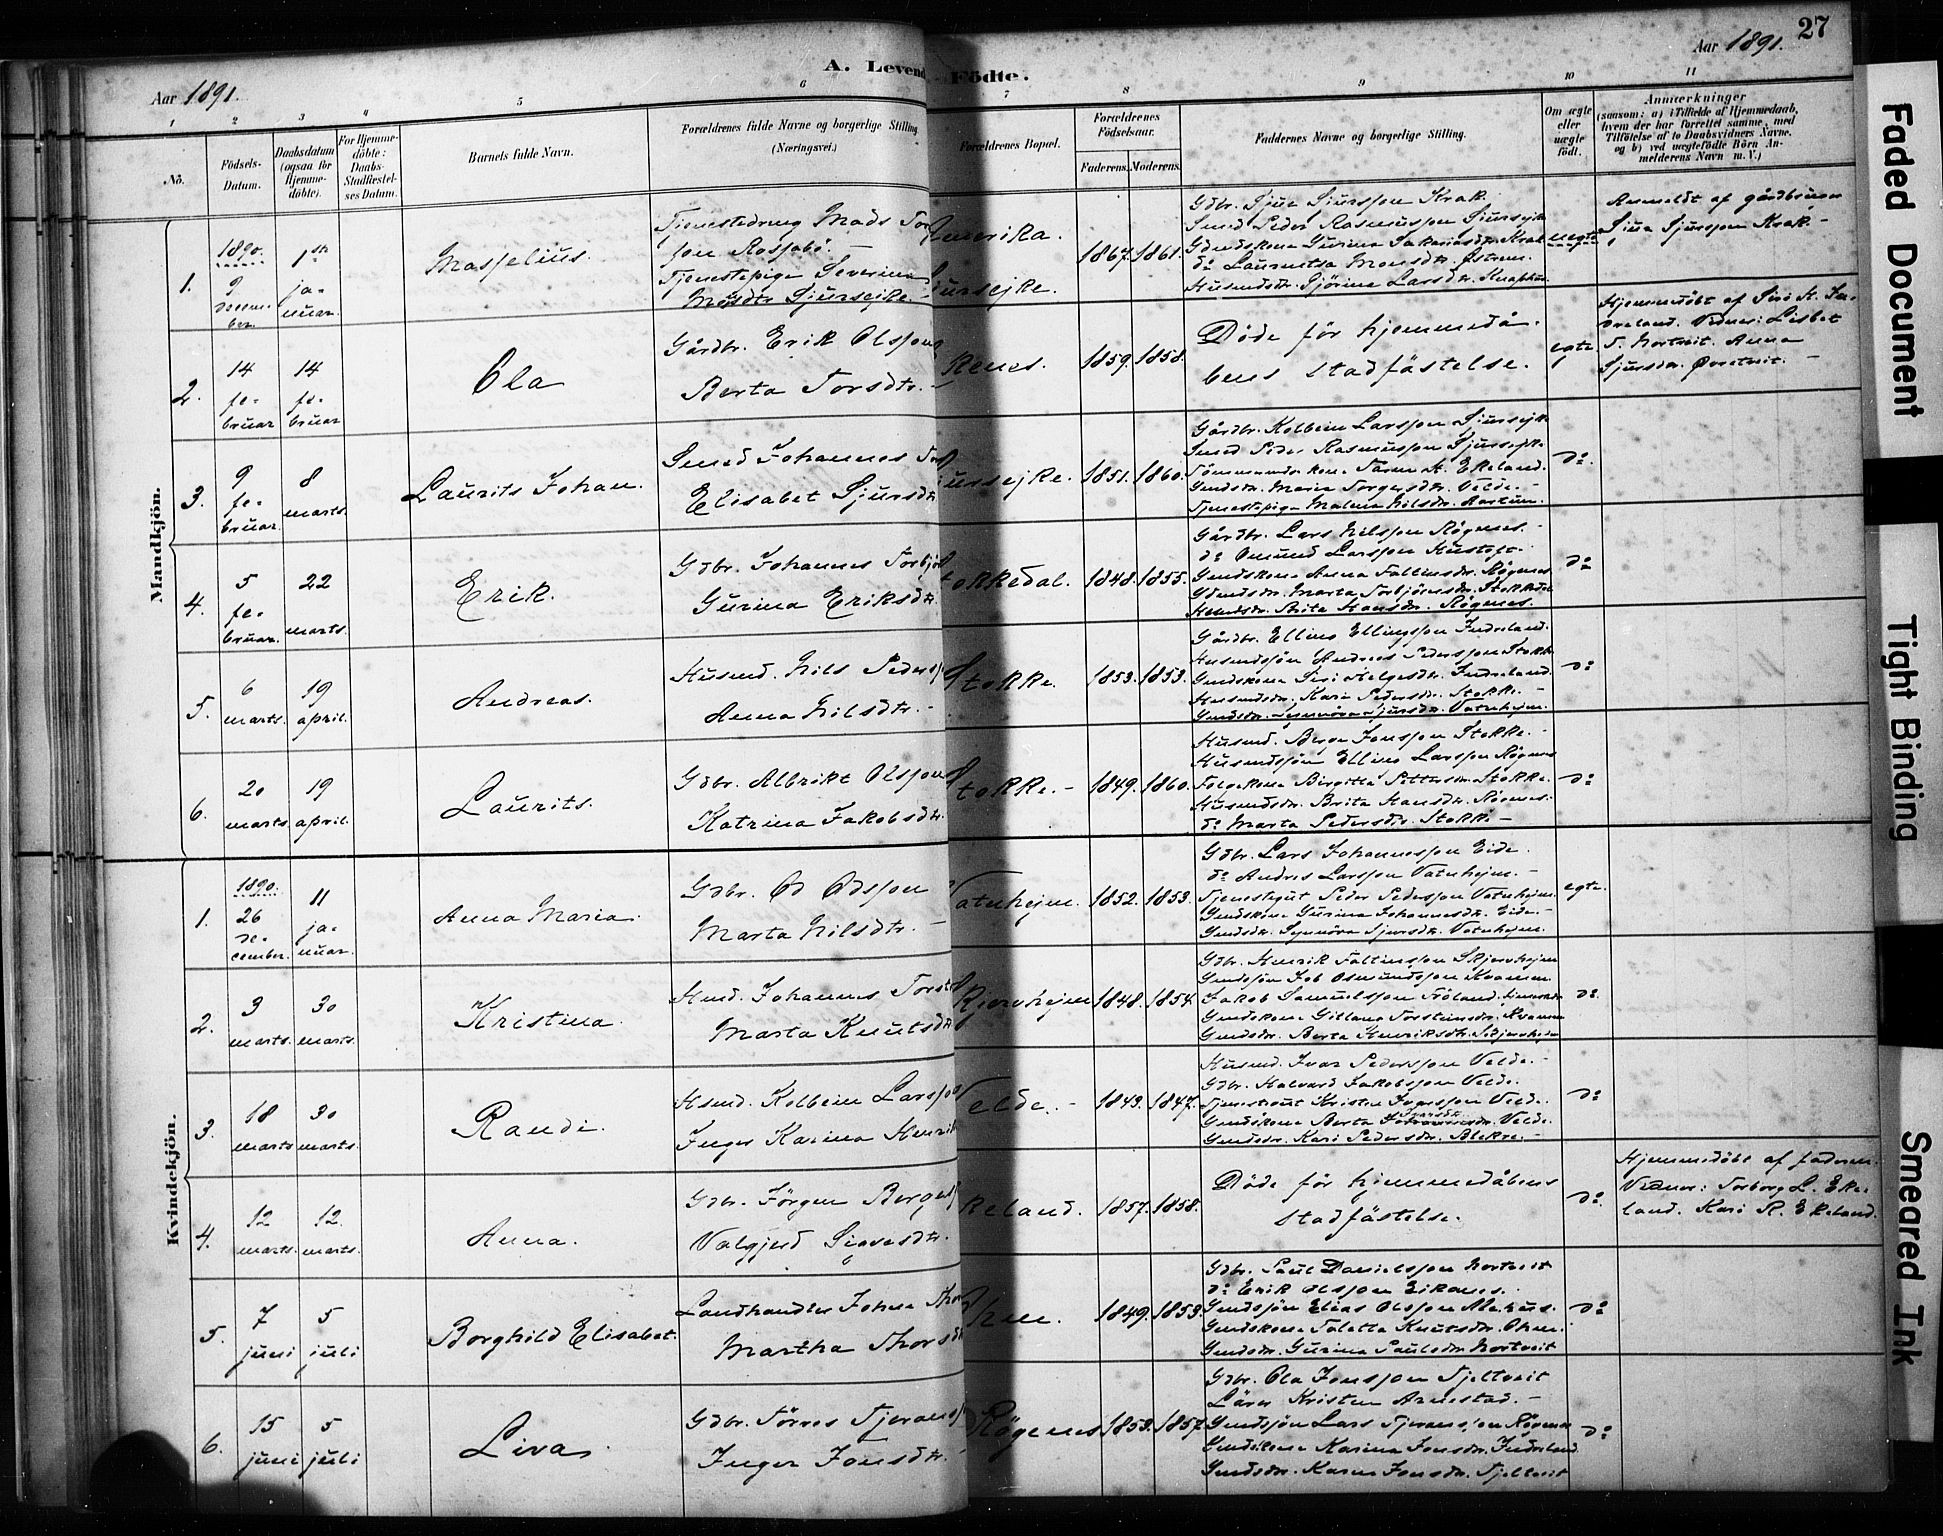 27
Aar 1891.
A. Levend Födte.
Aar 1891.
1 2 3 4 5 6 7 8 9 10 11
Nô.
Födsels-Datum.
Daabsdatum (ogsaa för Hjemme-döbte).
For Hjemme-döbte: Daabs-Stadfæstel-ses Datum.
Barnets fulde Navn.
Forældrenes fulde Navne og borgerlige Stilling
(Næringsvei.)
Forældrenes Bopæl.
Forældrenes Födselsaar.
Faderens. Moderens.
Faddernes Navne og borgerlige Stilling.
Om ægte eller uægte födt.
Anmærkninger
(saasom: a) i Tilfælde af Hjemmedaab,
hvem der har forrettet samme, med
Tilföielse af to Daabsvidners Navne.
og b) ved uægtefödte Börn An-
melderens Navn m. V.)
Mandkjön.
1.
1890.
9 decem-ber
1ste ja-nuar.
Masselius.
Tjenestedreng Mads Tor
son Rossabö.
Tjenestepige Severina
Mosdtr Sjurseike.
Amerika.
ursejke.
1867. 1861.
Gdbr. Sjua Sjursson Krak
Smed Peder Rasmusson Sjursejke
Husmdsdtr. Sjörina Larsdtr.
uegte
Anmeldt af gårdbruger
Sjua Sjursson Krak.-
2.
14 fe-bruar
14 fe-bruar
Ola
Gårdbr. Erik Olsson
Berta Torsdtr.
Renes.
1859. 1858.
Döde för hjemmedå-
bens stadfästelse.
egte
Hjemmedöbt af Siri H. In-
dreland. Vidner: Lisbet
T. Nortveit. Anna
Sjursdtr. Övretveit.
3.
9 fe-bruar.
8 marts.
Laurits Johan.
Smed Johannes Tor
Elisabet Sjursdtr
ursejke.
1851. 1860.
Gårdbr. Kolbein Larsson Sjursejke
Smed Peder Rasmusson Sjursejke
Gmdsdtr. Marta Torgersdtr. Velde.
Tjenestepige Malena Nilsdtr. Aartun.
do.
4.
5 fe-bruar.
22 marts.
Erik.
Gdbr. Johannes Torbjö
Gurina Eriksdtr.
tokkedal.
1848. 1855.
Gårdbr. Lars Nilsson Rögenes.-
do Omund Larsson Kustoft.
Gmdskone Anna Fattinsdtr. Rögenes
Gdmdsdtr. Marta Torbjörnsdtr. Stokkedal
Husmdsdtr. Brita Hansdtr. Rögenes.
do
5.
6 marts.
19 april.
Andreas.
Husmd. Nils Peders
Anna Nilsdtr.-
Stokke.
1853. 1853.
Gårdbr. Elling Ellingsson Indreland.
Husmdssön Andreas Pedersson Stokke
Gmdskone Siri Helgesdtr. Indreland.
Husmdsdtr. Kari Pedersdtr. Stokke.-
Gmdsdtr. Synnöva Sjursdtr. Vatnhejm.
do
6.
20 marts.
19 april.
Laurits.
Gdbr. Albrikt Olsson
Katrina Jakobsdtr.
Stokke.-
1849. 1860.
Husmd. Berge Jonsson Stokke.-
Husmandssön Elling Larsson Rögenes
Folgekone Birgitta Pettersdtr. Stokke.
Husmdsdtr. Brita Hansdtr. Rögenes.
do Marta Pedersdtr. Stokke-
do
Kvindekjön.
1.
1890.
26 de-cember.
11 ja-nuar.
Anna Maria.
Gdbr. Od Odsson
Marta Nilsdtr.
Vatnhejm.
1852. 1853.
Gdbr. Lars Johannesson Eide.
do Andris Larsson Vatnhejm.-
Tjenestegut Peder Pedersson Vatnhejm.
Gmdskone Gurina Johannesdtr. Eide.-
Gmdsdtr. Synnöva Sjursdtr. Vatnhejm.
egte.
2.
3 marts.
30 marts.
Kristina.
Husmd. Johannes Torst
Marta Knutsdtr
Skjervhejm
1848. 1854.
Gdbr. Henrik Fattinsson Skjervhejm
Gmdssön Job Osmundsson Kvamen
Jakob Samuelsson Fröland.
Gmdskone Gitlana Torsteinsdtr. Kvamen
Gmdsdtr. Berta Henriksdtr. Skjervhejm
do.
3.
18 marts
30 marts.
Randi.
Husmd. Kolbein Larsso
Inger Karina Henrik
Velde.-
1843. 1847.
Husmd. Ivar Pedersson Velde.-
Gdbr. Halvard Jakobsson Velde.
Tjenestegut Kristen Ivarsson Velde.
Gmdskone Berta Ivarsdtr. Velde.
Gmdsdtr. Kari Pedersdtr. Blekre.-
do
4.
12 marts.
12. marts.
Anna.
Gdbr. Jörgen Berges
Valgjerd Sjovesdtr.
keland.
1857. 1858.
Döde för hjemmedåbens
stadfästelse.
do
Hjemmedöbt af faderen.
Vidner: Torborg L. Eke-
land. Kari R. Ekeland.
5.
7 juni
5 juli
Borghild Elisabet.
Landhandler Johne Thor
Martha Thorsdtr
hm.
1849. 1853.
Gdbr. Paul Danielsson Nortveit
do Erik Olsson Eikenes.
Gmdssön Elias Olsson
Gmdskone Taletta Knutsdtr.
Gmdsdtr. Gurina Paulsdtr. Nortveit
do
6.
15 juni
5 juli
Liva.
Gdbr. Törres Tjerans
Inger Jonsdtr.
Rögenes
1853. 1857.
Gdbr. Ola Jonsson Tjeltveit
Lärer Kristen Arnestad.-
Gmdssön Lars Tjeransson Rögenes
Gmdskone Karina Jonsdtr. Indreland.
Gmdsdtr. Karen Jonsdtr. Tjeltveit
do
Faded Document
Tight Binding
Smeared Ink